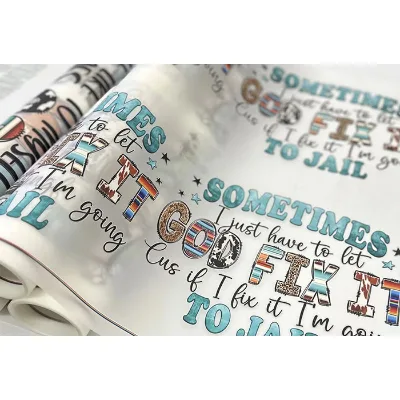 SOMETIMES
I just have to let
GOD FIX IT
Cus if I fix it I'm
TO JAIL
TIMES
to let
FIX IT
I'm going
JAIL
SOMETIMES
I just have to let
GOD FIX IT
Cus if I fix it I'm
TO JAIL